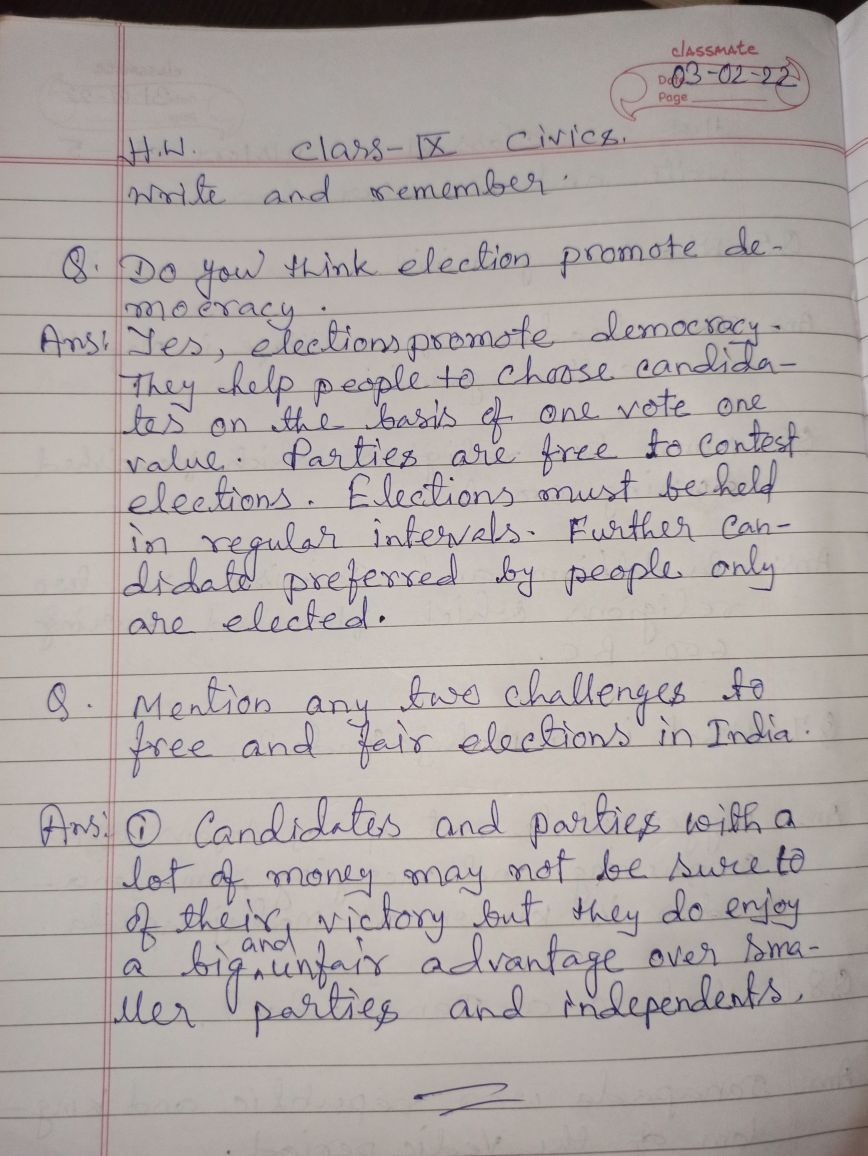 classmate
Date 03-02-22
Page
H.W. Class-IX Civics.
Write and remember.
Q. Do you think election promote de-
mocracy.
Ans: Yes, elections promote democracy.
They help people to choose candida-
tes on the basis of one vote one
value. Parties are free to contest
elections. Elections must be held
in regular intervals. Further can-
didate preferred by people only
are elected.
Q. Mention any two challenges to
free and fair elections in India.
Ans: ① Candidates and parties with a
lot of money may not be sure to
of their victory but they do enjoy
a big and unfair advantage over sma-
ller parties and independents.